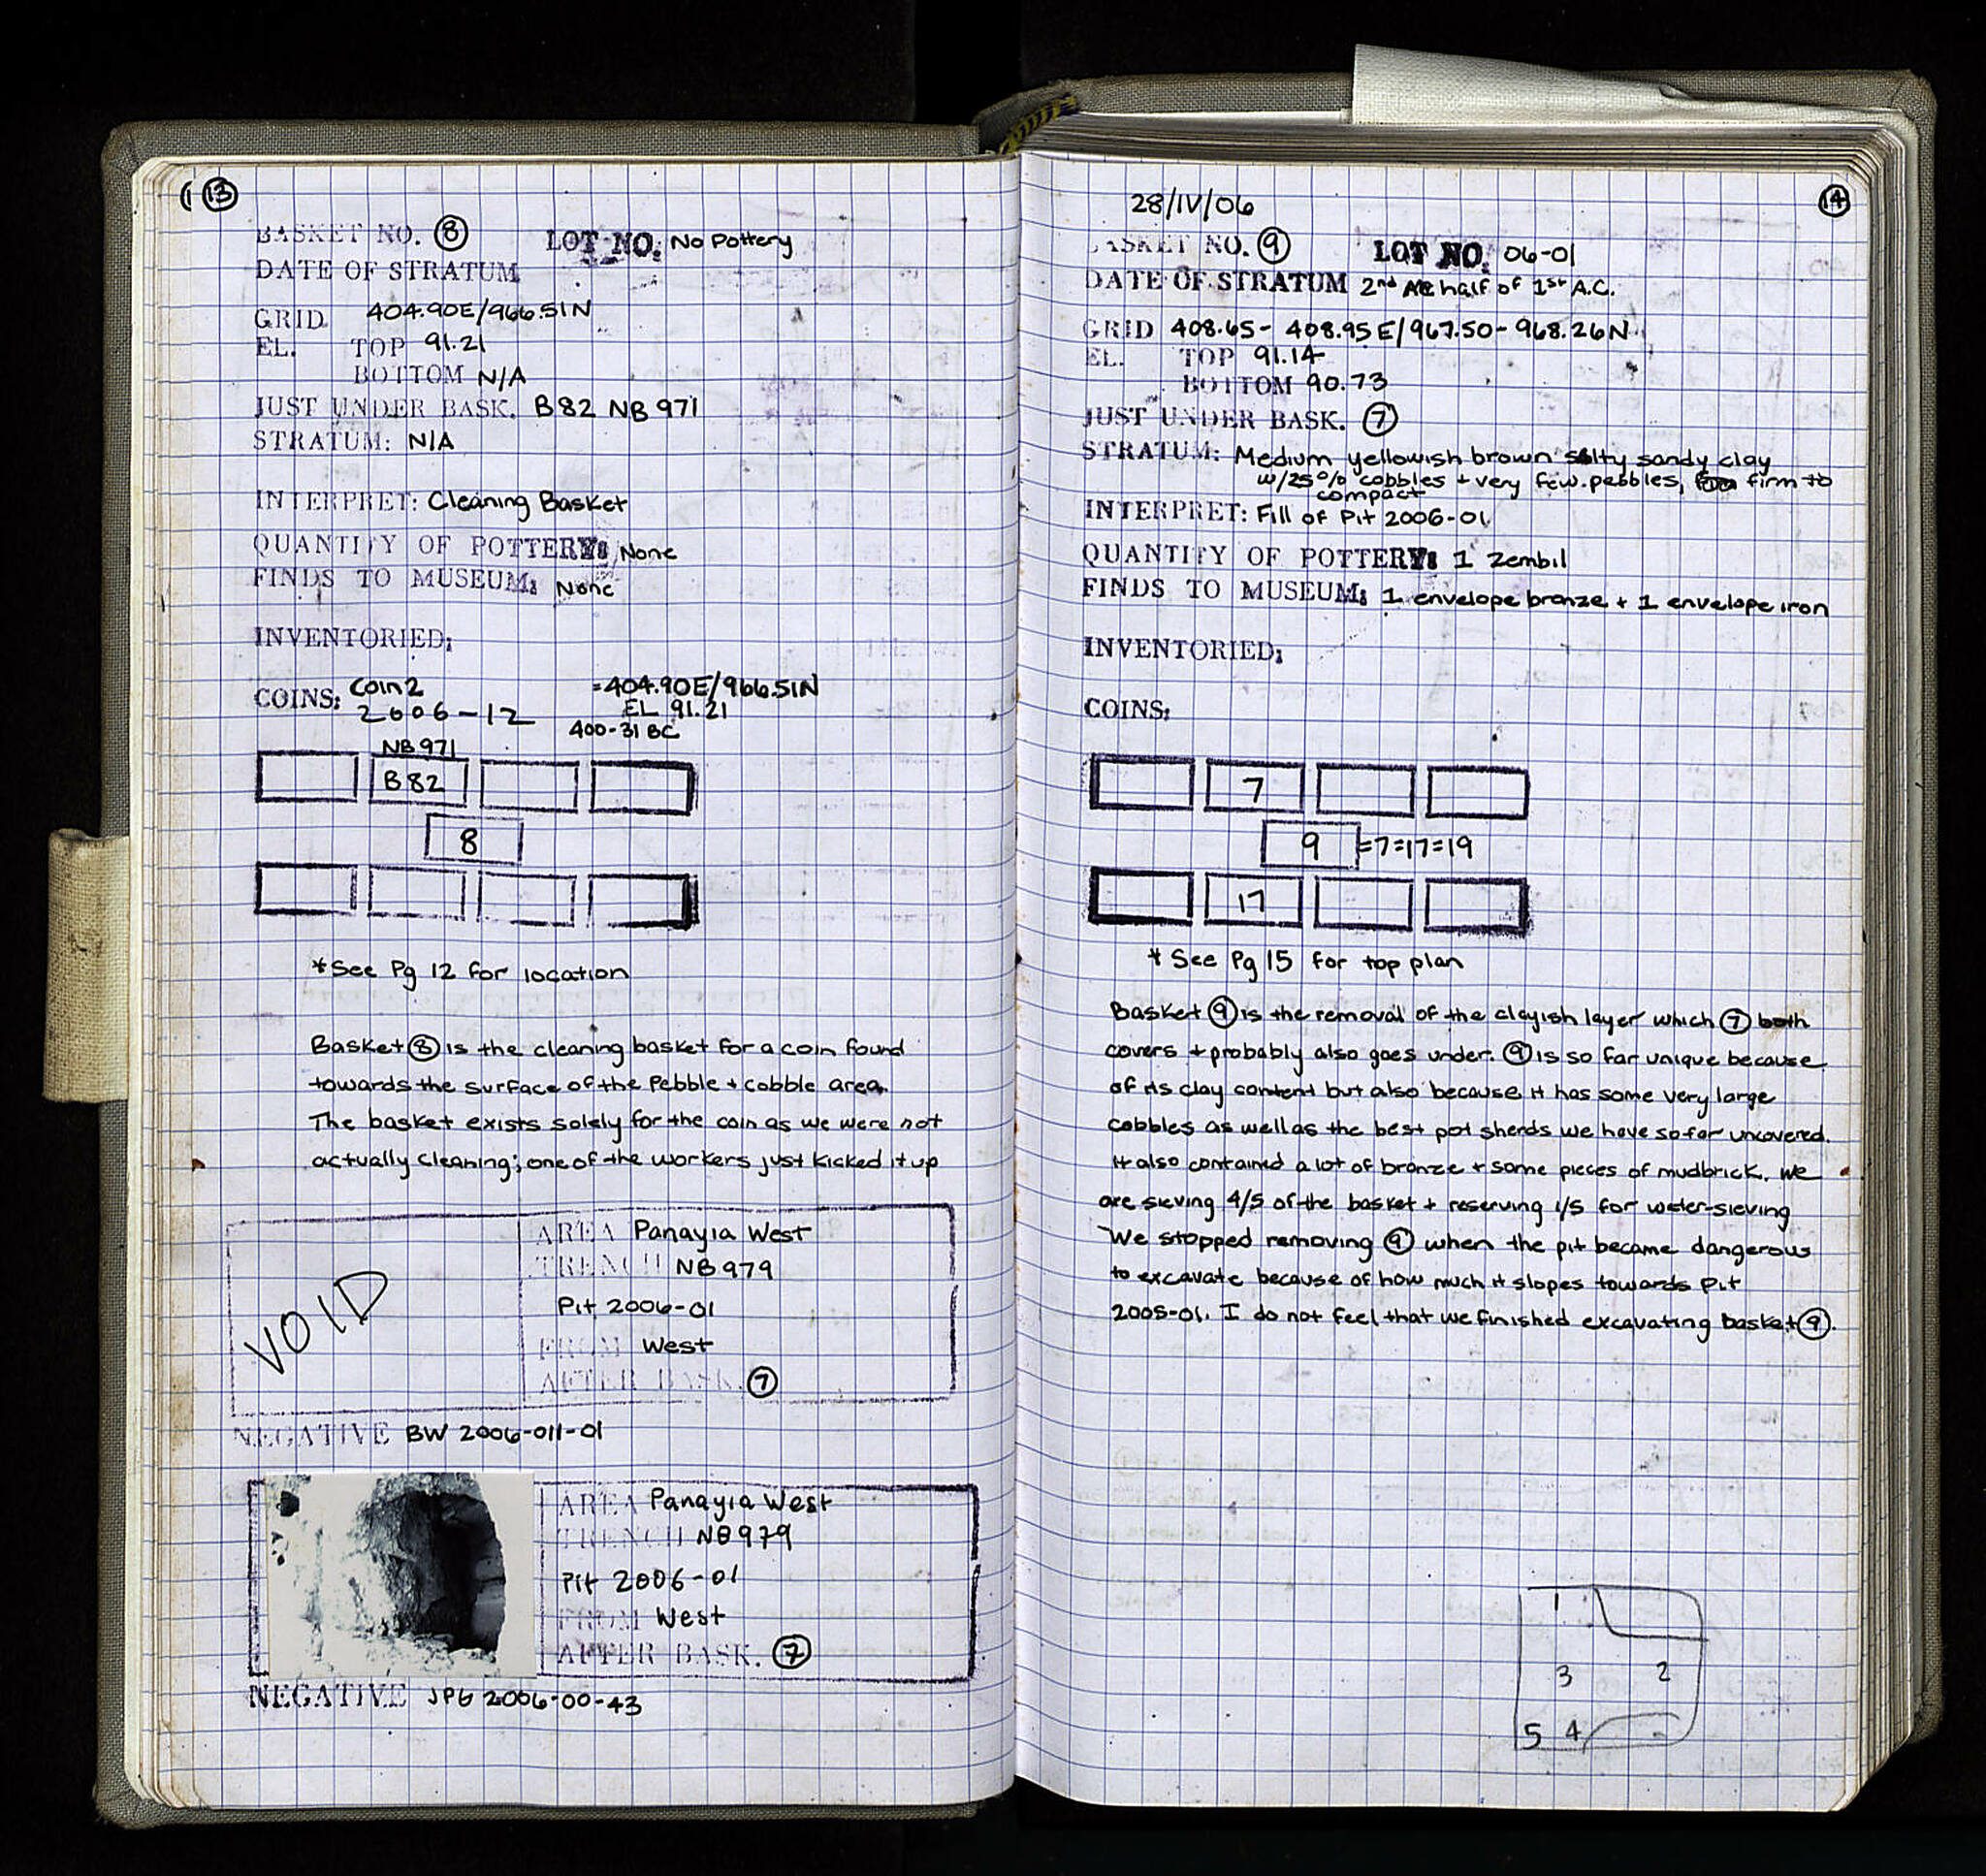 13
BASKET NO. 8 LOT NO: No Pottery
DATE OF STRATUM
GRID 404.90E/966.51N
EL. TOP 91.21
BOTTOM N/A
JUST UNDER BASK. B82 NB971
STRATUM: N/A
INTERPRET: Cleaning Basket
QUANTITY OF POTTERY: None
FINDS TO MUSEUM: None
INVENTORIED:
COINS: Coin 2 =404.90E/966.51N
2006-12 EL 91.21
400-31 BC
NB971
B82
8
*See Pg 12 for location
Basket 8 is the cleaning basket for a coin found
towards the surface of the pebble + cobble area.
The basket exists solely for the coin as we were not
actually cleaning; one of the workers just kicked it up
VOID
AREA Panayia West
TRENCH NB979
Pit 2006-01
FROM West
AFTER BASK. 7
NEGATIVE BW 2006-011-01
AREA Panayia West
TRENCH NB979
Pit 2006-01
FROM West
AFTER BASK. 7
NEGATIVE JPG 2006-00-43
14
28/IV/06
BASKET NO. 9 LOT NO. 06-01
DATE OF STRATUM 2nd half of 1st A.C.
GRID 408.65- 408.95E/967.50-968.26N
EL. TOP 91.14
BOTTOM 90.73
JUST UNDER BASK. 7
STRATUM: Medium yellowish brown silty sandy clay
w/25% cobbles + very few pebbles, firm to
compact
INTERPRET: Fill of Pit 2006-01
QUANTITY OF POTTERY: 1 Zembil
FINDS TO MUSEUM: 1 envelope bronze + 1 envelope iron
INVENTORIED:
COINS:
7
9 =7=17=19
17
* See Pg 15 for top plan
Basket 9 is the removal of the clayish layer which 7 both
covers + probably also goes under. 9 is so far unique because
of its clay content but also because it has some very large
cobbles as well as the best pot sherds we have so far uncovered.
It also contained a lot of bronze + some pieces of mudbrick. We
are sieving 4/5 of the basket + reserving 1/5 for water-sieving
We stopped removing 9 when the pit became dangerous
to excavate because of how much it slopes towards Pit
2005-01. I do not feel that we finished excavating basket 9.
1
3 2
5 4